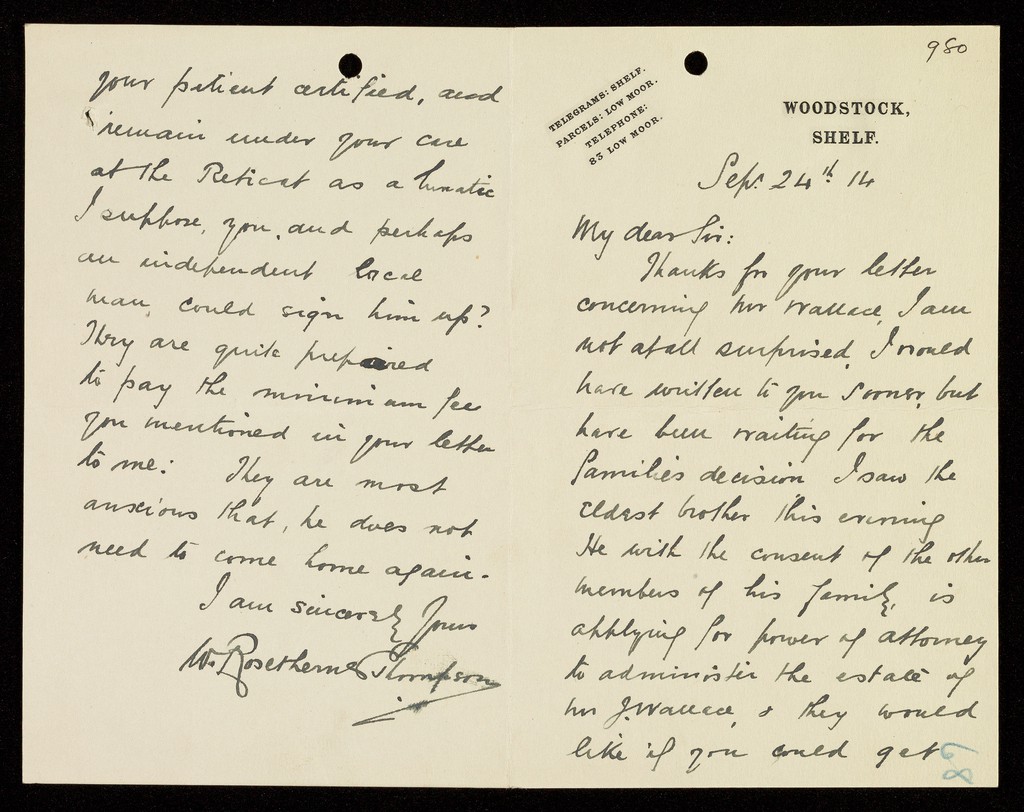 980
TELEGRAMS: SHELF.
PARCELS: LOW MOOR.
TELEPHONE:
83 LOW MOOR.
WOODSTOCK,
SHELF.
Sept. 24th 14
My dear Sir:
Thanks for your letter
concerning Mr Wallace, I am
not at all surprised. I would
have written to you sooner, but
have been waiting for the
families decision I saw the
eldest brother this evening
He with the consent of the other
members of his family, is
applying for power of attorney
to administer the estate of
Mr J. Wallace, & they would
like if you could get
89
your patient certified, and
remain under your care
at the Retreat as a lunatic
I suppose, you, and perhaps
an independent local
man, could sign him up?
They are quite prepared
to pay the minimum fee
you mentioned in your letter
to me: They are most
anxious that, he does not
need to come home again.
I am sincerely Yours
Wm Rosetherne Thompson